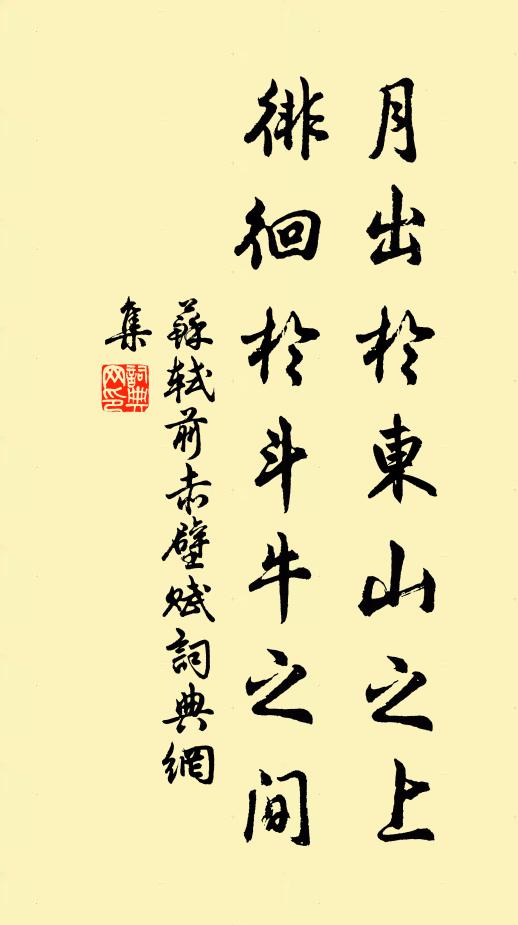 月出於東山之上
徘徊於斗牛之間
蘇軾前赤壁賦詞典網
集
詞典網印